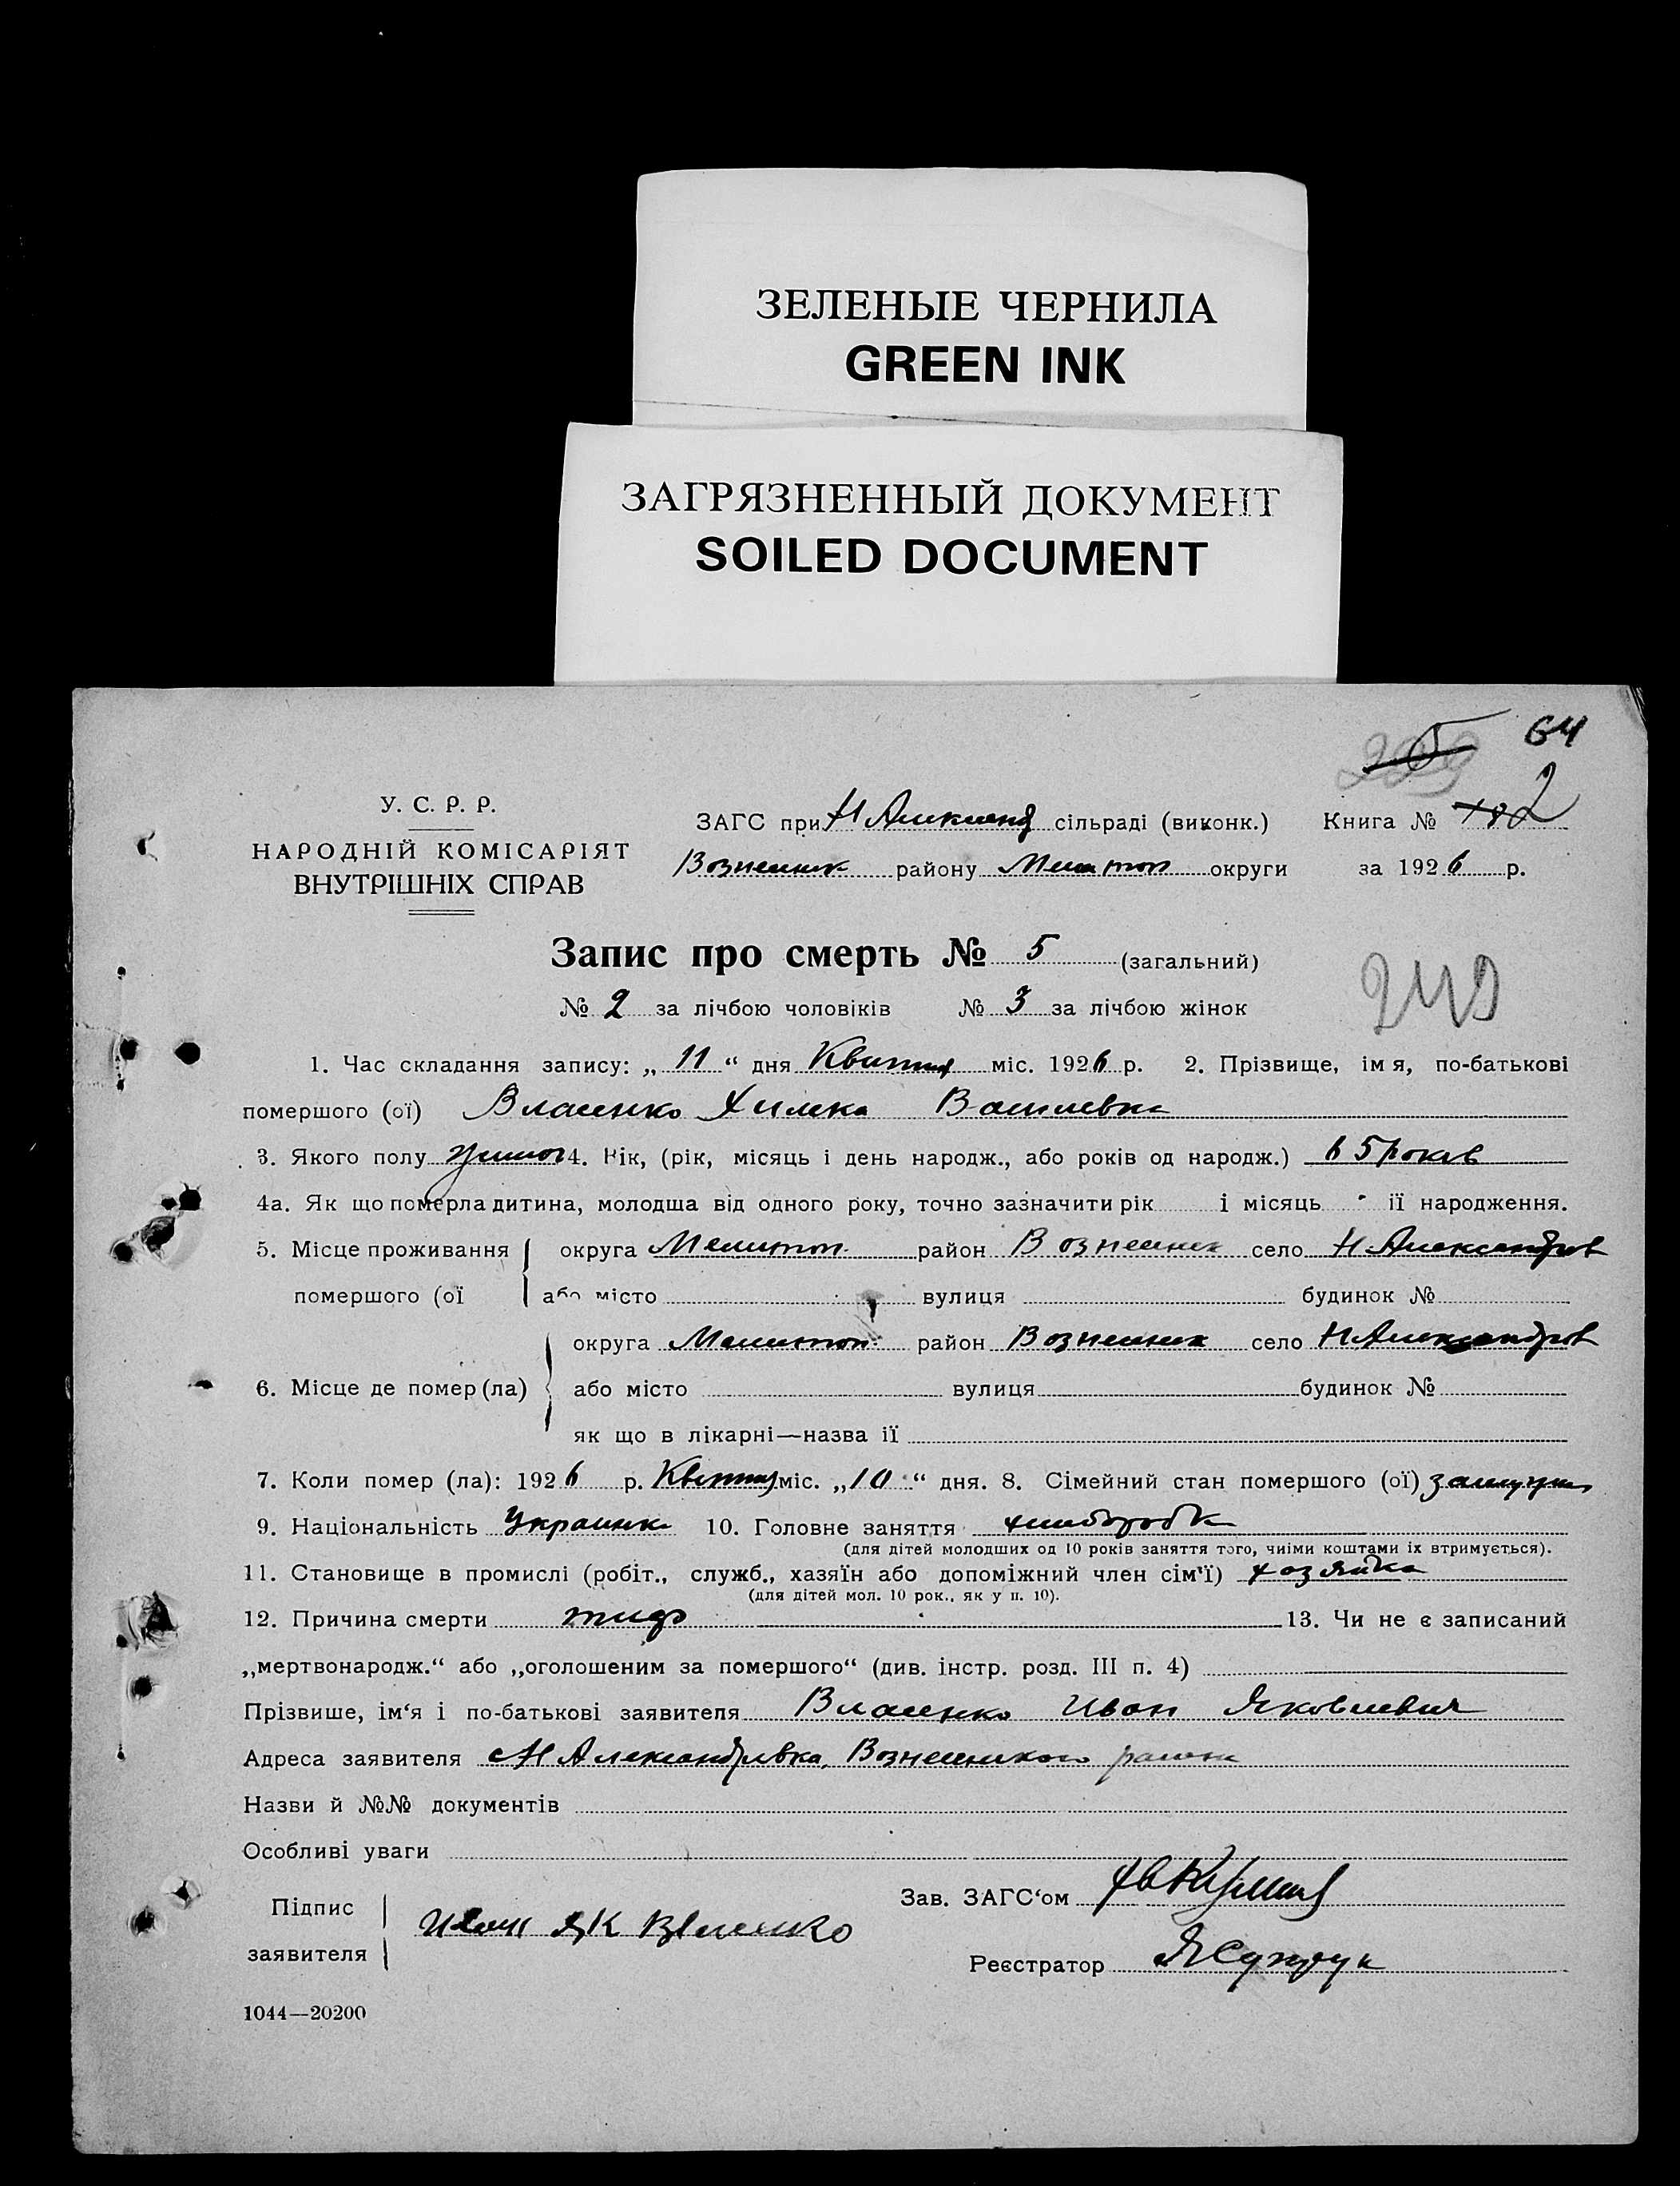 ЗЕЛЕНЫЕ ЧЕРНИЛА
GREEN INK
ЗАГРЯЗНЕННЫЙ ДОКУМЕНТ
SOILED DOCUMENT
64
У. С. Р. Р.
НАРОДНІЙ КОМІСАРІЯТ
ВНУТРІШНІХ СПРАВ
ЗАГС при Н Александ сільраді (виконк.) Книга № 2
Вознесенск району Мелитоп округи за 1926 р.
Запис про смерть № 5 (загальний)
242
№ 2 за лічбою чоловіків № 3 за лічбою жінок
1. Час складання запису: „ 11 “ дня Квитня міс. 1926 р. 2. Прізвище, імя, по-батькові
помершого (ої) Власенко Василевна
3. Якого полу 4. Рік, (рік, місяць і день народж., або років од народж.) 65 років
4а. Як що померла дитина, молодша від одного року, точно зазначити рік і місяць її народження.
5. Місце проживання округа Мелитоп. район Вознесенск село Н Александров
помершого (ої або місто вулиця будинок №
округа Мелитоп. район Вознесенск село Н Александров
6. Місце де помер (ла) або місто вулиця будинок №
як що в лікарні—назва її
7. Коли помер (ла): 1926 р. Квитня міс. „10“ дня. 8. Сімейний стан помершого (ої) замужня
9. Національність Украинка 10. Головне заняття хлибороб
(для дітей молодших од 10 років заняття того, чиїми коштами їх втримується).
11. Становище в промислі (робіт., служб., хазяїн або допоміжний член сім'ї) хозяйка
(для дітей мол. 10 рок., як у п. 10).
12. Причина смерти тиф 13. Чи не є записаний
„мертвонародж.“ або „оголошеним за помершого“ (див. інстр. розд. III п. 4)
Прізвише, ім'я і по-батькові заявителя Власенко Иван Яковлевич
Адреса заявителя Н Александривка, Вознесенского района
Назви й №№ документів
Особливі уваги
Зав. ЗАГС'ом
Підпис
заявителя Иван Як Власенко
Реєстратор
1044—20200